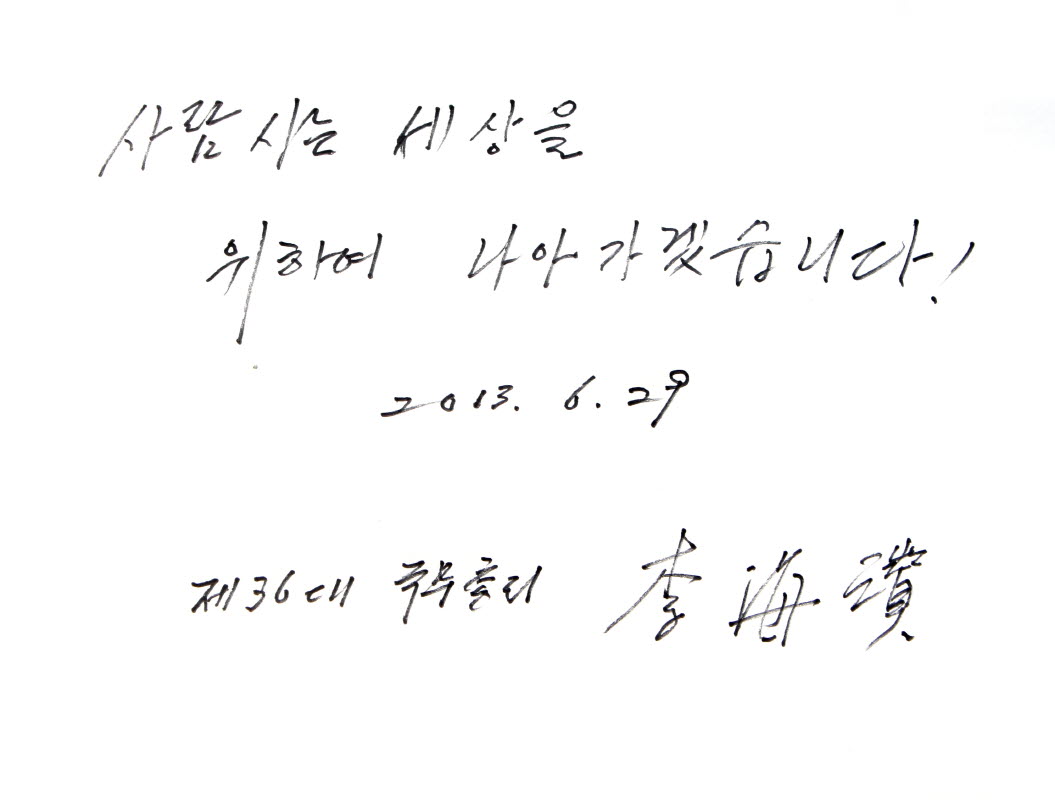 사람 사는 세상을
위하여 나아가겠습니다!
2013. 6. 29
제36대 국무총리 李海瓚